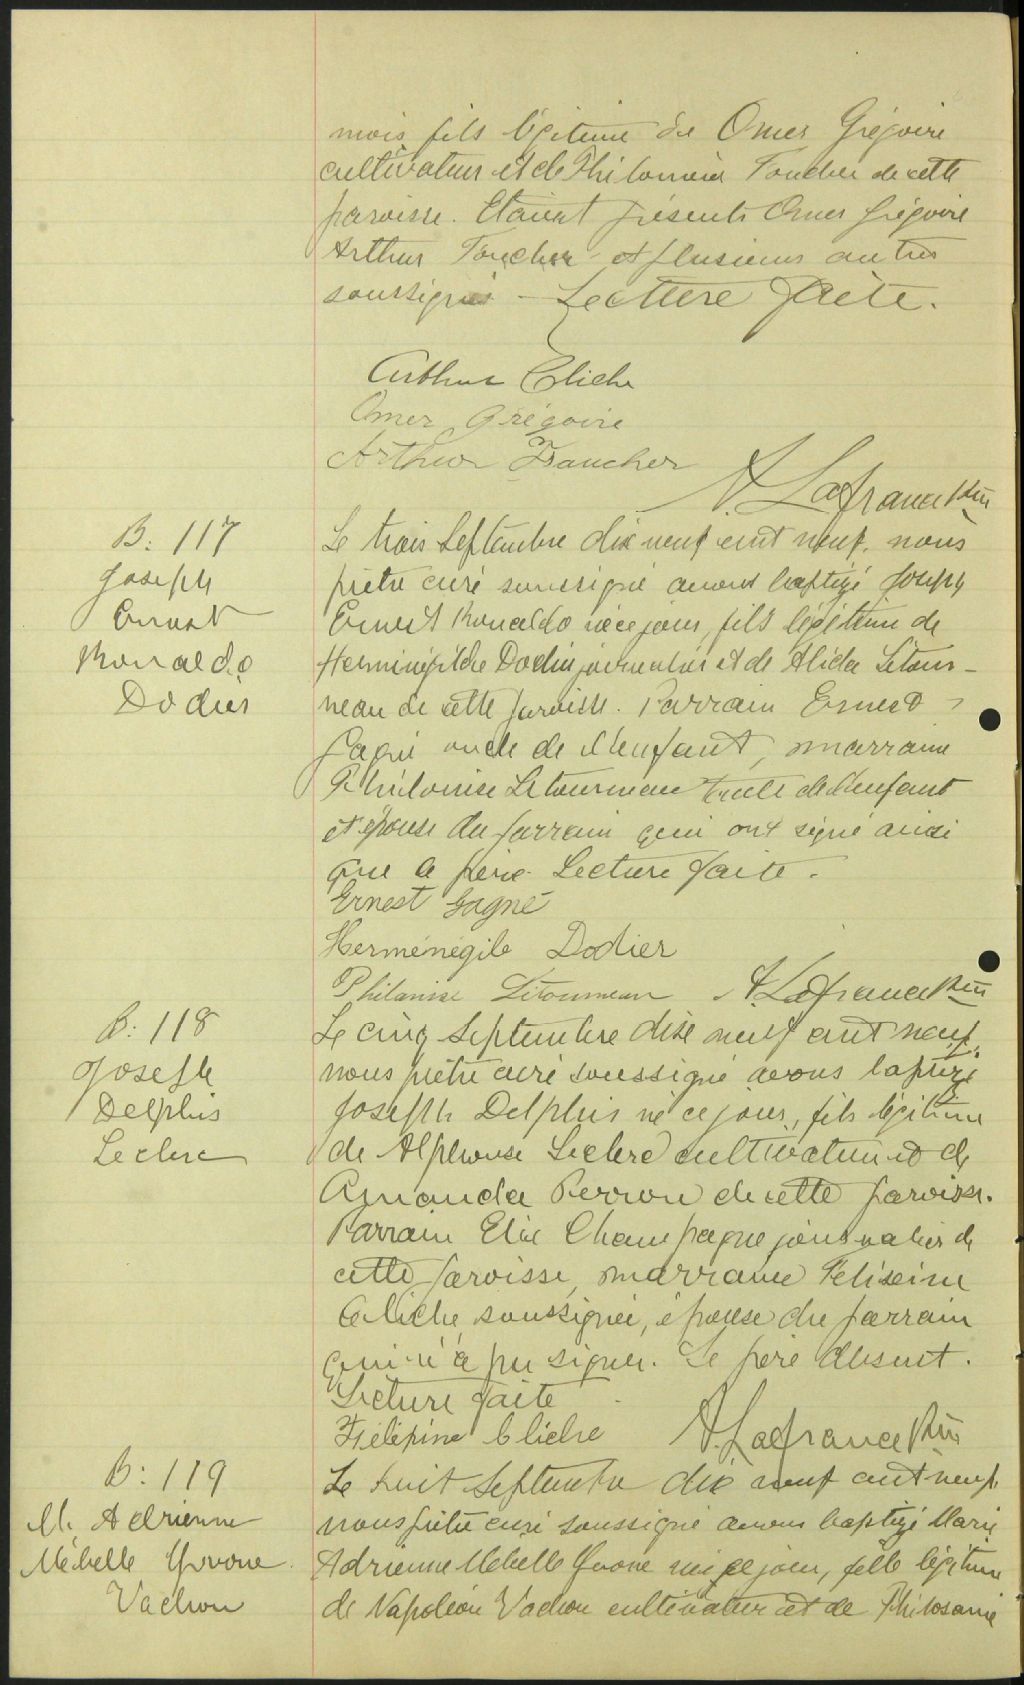 mois fils légitime de Omer Grégoire
cultivateur et de Philomène Foucher de cette
paroisse. Etaient présents Omer Grégoire
Arthur Foucher et plusieurs autres
soussignés - Lecture faite.
Arthur Cliche
Omer Grégoire
Arthur Faucher
A. Lafrance Ptre
B: 117
Joseph
Ernest
Ronaldo
Dodier
Le trois Septembre dix neuf cent neuf, nous
prêtre curé soussigné avons baptizé Joseph
Ernest Ronaldo né ce jour, fils légitime de
Herminégilde Dodier journalier et de Alida Létour-
neau de cette paroisse. Parrain Ernest
Gagné oncle de l'enfant, marraine
Philonise Létourneau tante de l'enfant
et épouse du parrain qui ont signé ainsi
que le père. Lecture faite.
Ernest Gagné
Herménégile Dodier
Philanise Létourneau A. Lafrance Ptre
B: 118
Joseph
Delphis
Leclerc
Le cinq Septembre dix neuf cent neuf,
nous prêtre curé soussigné avons baptizé
Joseph Delphis né ce jour, fils légitime
de Alphonse Leclerc cultivateur et de
Amanda Perron de cette paroisse.
Parrain Elie Champagne journalier de
cette paroisse, marraine
Cliche soussignée, épouse du parrain
qui n'a pu signer. Le père absent.
Lecture faite
Cliche A. Lafrance Ptre
B: 119
M. Adrienne
Mébelle Yvonne
Vachon
Le huit Septembre dix neuf cent neuf
nous prêtre curé soussigné avons baptizé Marie
Adrienne Mebelle Yvone née ce jour, fille légitime
de Napoléon Vachon cultivateur et de